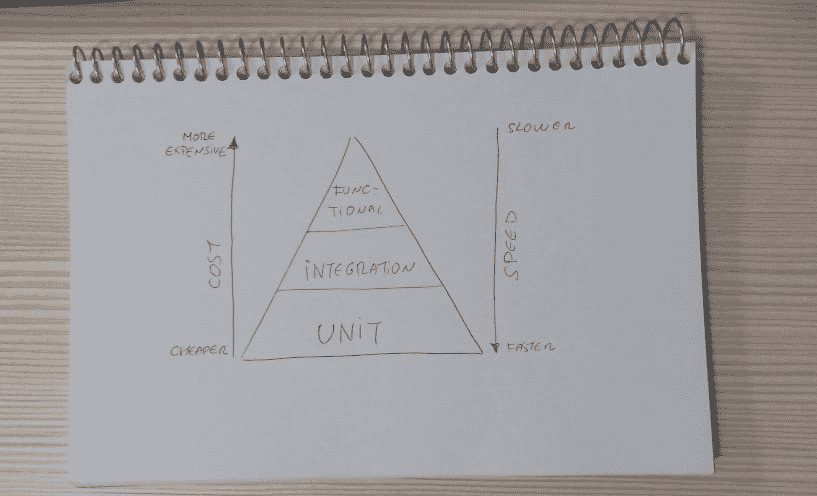 MORE
EXPENSIVE
COST
CHEAPER
FUNC-
TIONAL
INTEGRATION
UNIT
SLOWER
SPEED
FASTER